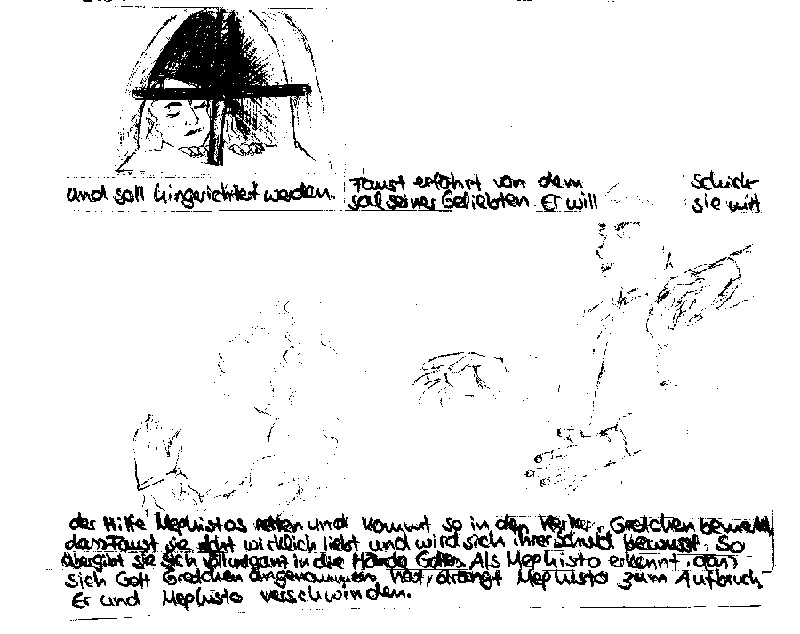 und soll hingerichtet werden.
Faust erfährt von dem Schick-
sal seiner Geliebten. Er will sie mit
der Hilfe Mephistos retten und kommt so in den Kerker. Gretchen bemerkt,
dass Faust sie nicht wirklich liebt und wird sich ihrer Schuld bewusst. So
übergibt sie sich voll und ganz in die Hände Gottes. Als Mephisto erkennt, dass
sich Gott Gretchen angenommen hat, drängt Mephisto zum Aufbruch.
Er und Mephisto verschwinden.